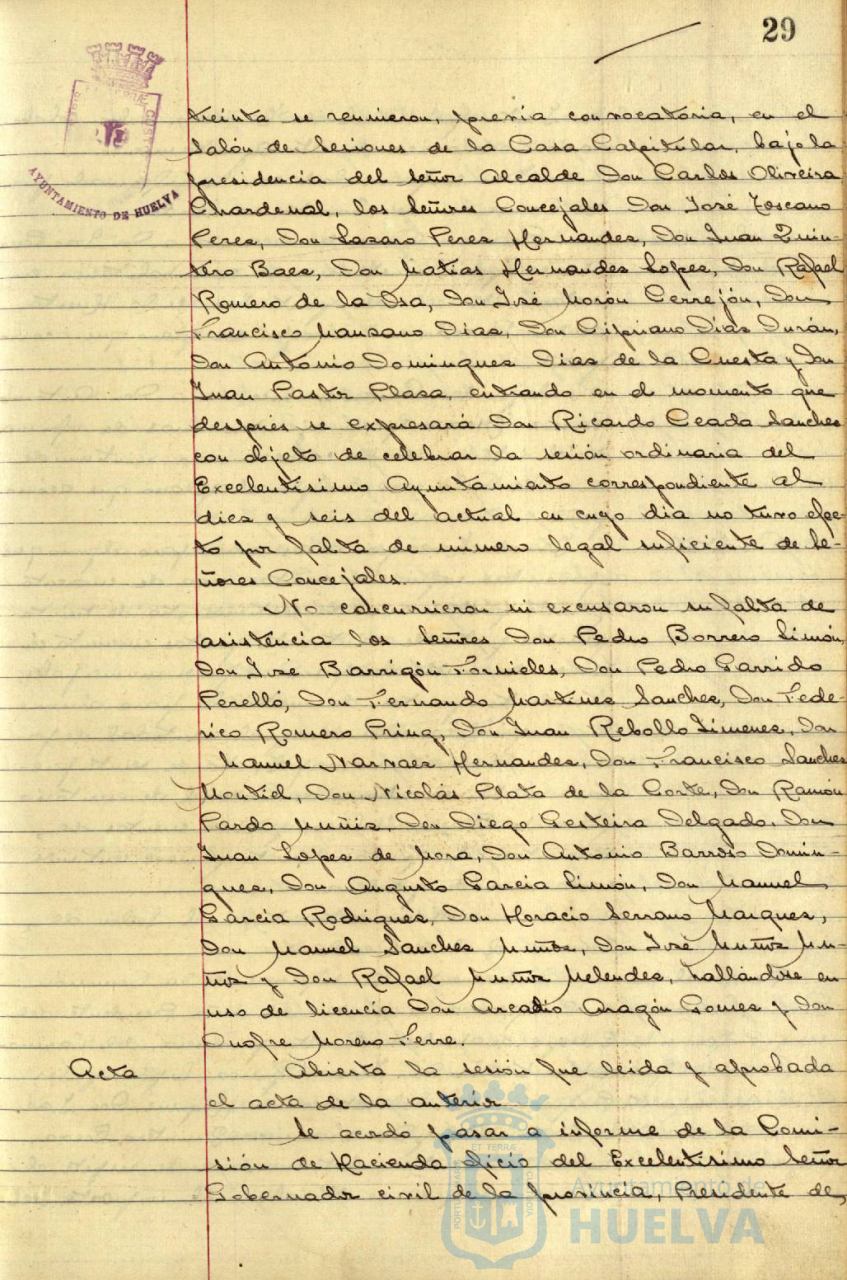 29
AYUNTAMIENTO DE HUELVA
treinta se reunieron, previa convocatoria, en el
Salón de Sesiones de la Casa Capitular, bajo la
presidencia del Señor Alcalde Don Carlos Oliveira
Chardenal, los Señores Concejales Don José Toscano
Perez, Don Lazaro Perez Hernandez, Don Juan Quin-
tero Baez, Don Matias Hernandez Lopez, Don Rafael
Romero de la Osa, Don José Morón Cerrejón, Don
Francisco Manzano Diaz, Don Cipriano Diaz Durán,
Don Antonio Dominguez Diaz de la Cuesta y Don
Juan Pastor Plaza, entrando en el momento que
después se expresará Don Ricardo Ceada Sanchez
con objeto de celebrar la sesión ordinaria del
Excelentísimo Ayuntamiento correspondiente al
diez y seis del actual en cuyo dia no tuvo efec-
to por falta de número legal suficiente de Se-
ñores Concejales.
No concurrieron ni excusaron su falta de
asistencia los Señores Don Pedro Borrero Limón,
Don José Barrigón Fornieles, Don Pedro Garrido
Perelló, Don Fernando Martinez Sanchez, Don Fede-
rico Romero Prinz, Don Juan Rebollo Jimenez, Don
Manuel Narvaez Hernandez, Don Francisco Sanchez
Montiel, Don Nicolás Plata de la Corte, Don Ramón
Pardo Muñiz, Don Diego Gesteira Delgado, Don
Juan Lopez de Mora, Don Antonio Barroso Domin-
guez, Don Augusto Garcia Limón, Don Manuel
Garcia Rodriguez, Don Horacio Serrano Marquez,
Don Manuel Sanchez Muñoz, Don José Muñoz Mu-
ñoz y Don Rafael Muñoz Melendez, hallándose en
uso de licencia Don Arcadio Aragón Gomez y Don
Onofre Moreno Ferre.
Acta
Abierta la sesión fue leida y aprobada
el acta de la anterior.
Se acordó pasar a informe de la Comi-
sión de Hacienda oficio del Excelentísimo Señor
Gobernador civil de la provincia, Presidente de
Ayuntamiento de
HUELVA